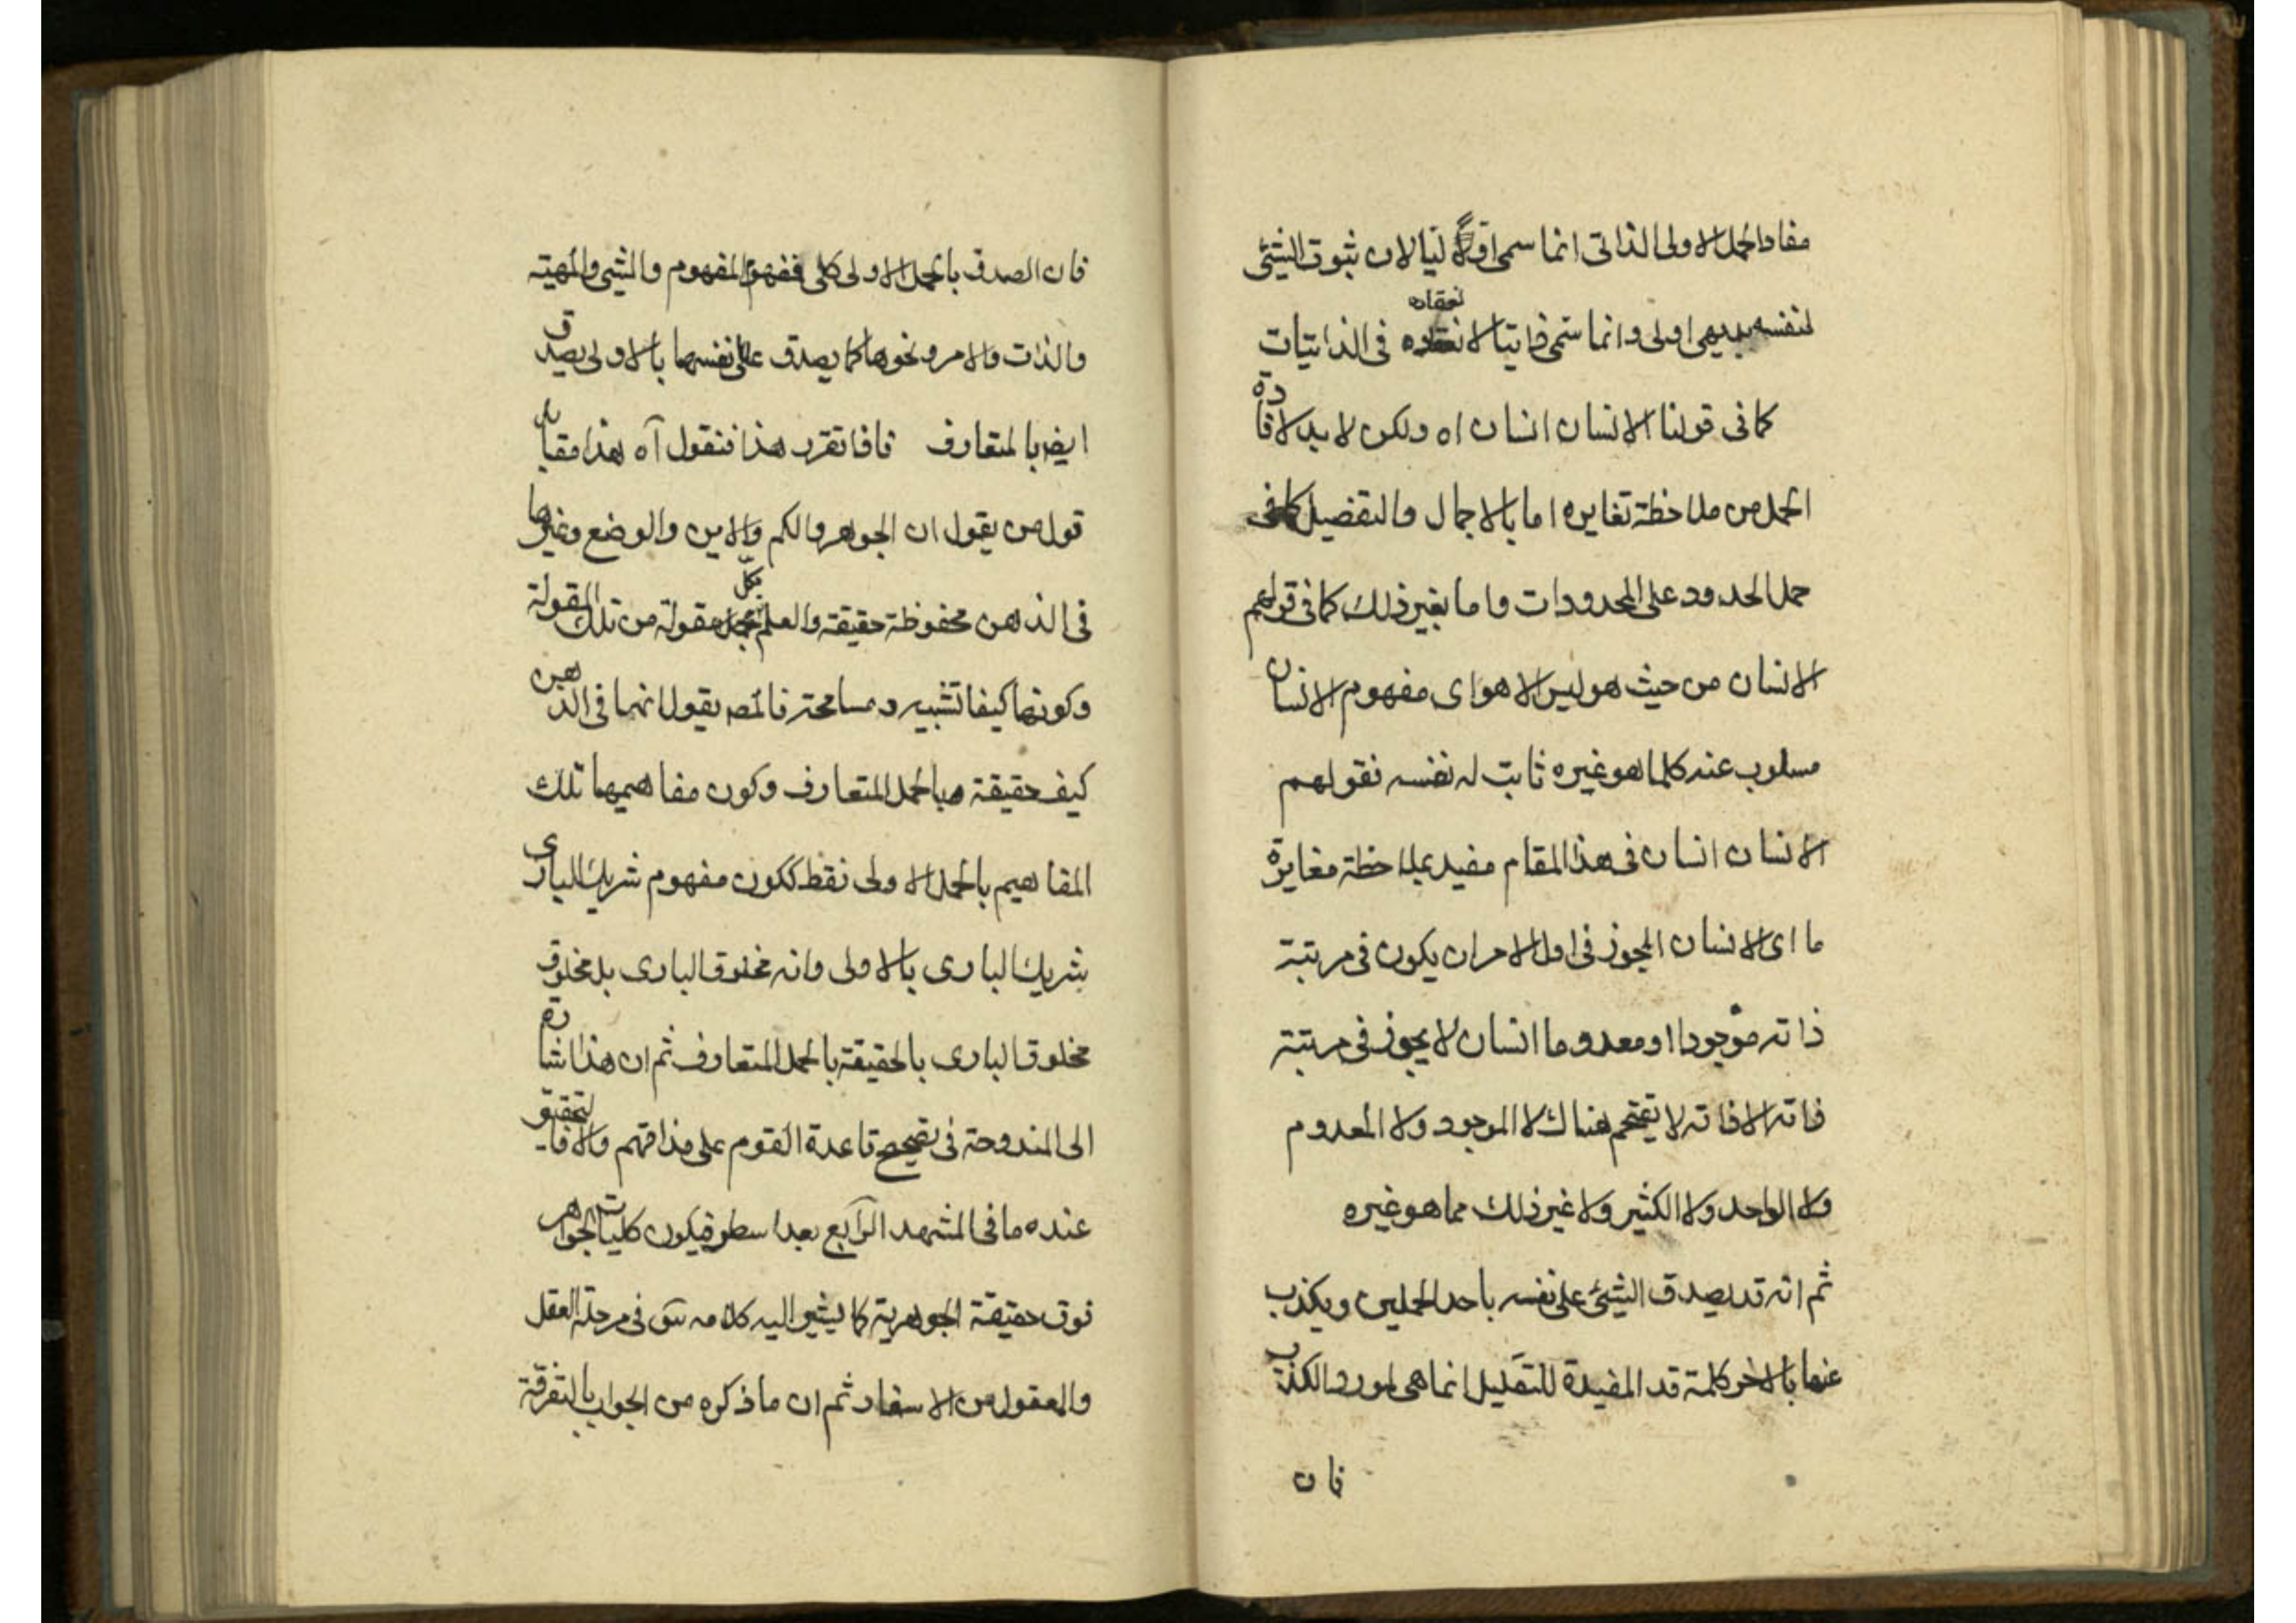 مفاد الحمل الاولى الذاتى انما سمى اوّلاً ليا لان ثبوت الشیئ
لنفسه بديهى اولى وانما سمّى ذاتيا لانعقاده فى الذاتيات
كما فى قولنا الانسان انسان اه ولكن لا بد لافادة
الحمل من ملاحظة تغاير ه اما بالاجمال والتفصيل كما فى
حمل الحدود على المحدودات واما بغير ذلك كما فى قولهم
الانسان من حيث هو ليس الا هو اى مفهوم الانسان
مسلوب عنه كلما هو غيره ثابت له نفسه فقولهم
الانسان انسان فى هذا المقام مفيد بملاحظة مغايرة
ما اى الانسان المجوز فى اول الامر ان يكون فى مرتبة
ذاته موجودا او معدوما انسان لا يجوز فى مرتبة
ذاته الا ذاته لا تقتحم هناك لا الموجود ولا المعدوم
ولا الواحد ولا الكثير ولا غير ذلك مما هو غيره
ثم انه قد يصدق الشیئ على نفسه باحد الحملين ويكذب
عنها بالاخر كلمة قد المفيدة للتقليل انما هى لمورد الكذب
فان
فان الصدق بالحمل الاولى كلى فمفهوم المفهوم والشیئ والمهية
والذات والامر ونحوها كما يصدق على نفسها بالاولى يصدق
ايضا بالمتعارف فاذا تقرر هذا فنقول آه هذا مقابل
قول من يقول ان الجوهر والكم والاين والوضع وغيرها
فى الذهن محفوظة حقيقة والعلم بكل مقولة من تلك المقولة
وكونها كيفا تشبيه ومسامحة فالمصـ يقول انها فى الذهن
كيف حقيقة وبالحمل المتعارف وكون مفاهيمها تلك
المفاهيم بالحمل الاولى فقط ككون مفهوم شريك البارى
شريك البارى بالاولى وانه مخلوق البارى بل مخلوق
مخلوق البارى بالحقيقة بالحمل المتعارف ثم ان هذا اشارة
الى المندوحة فى تصحيح قاعدة القوم على مذاقهم والا فالتحقيق
عنده ما فى المشهد الرابع بعد اسطر فيكون كليات الجواهر
فوق حقيقة الجوهرية كما يشير اليه كلامه سَ فى مرحلة العقل
والمعقول من الاسفار ثم ان ما ذكره من الجواب بالتفرقة